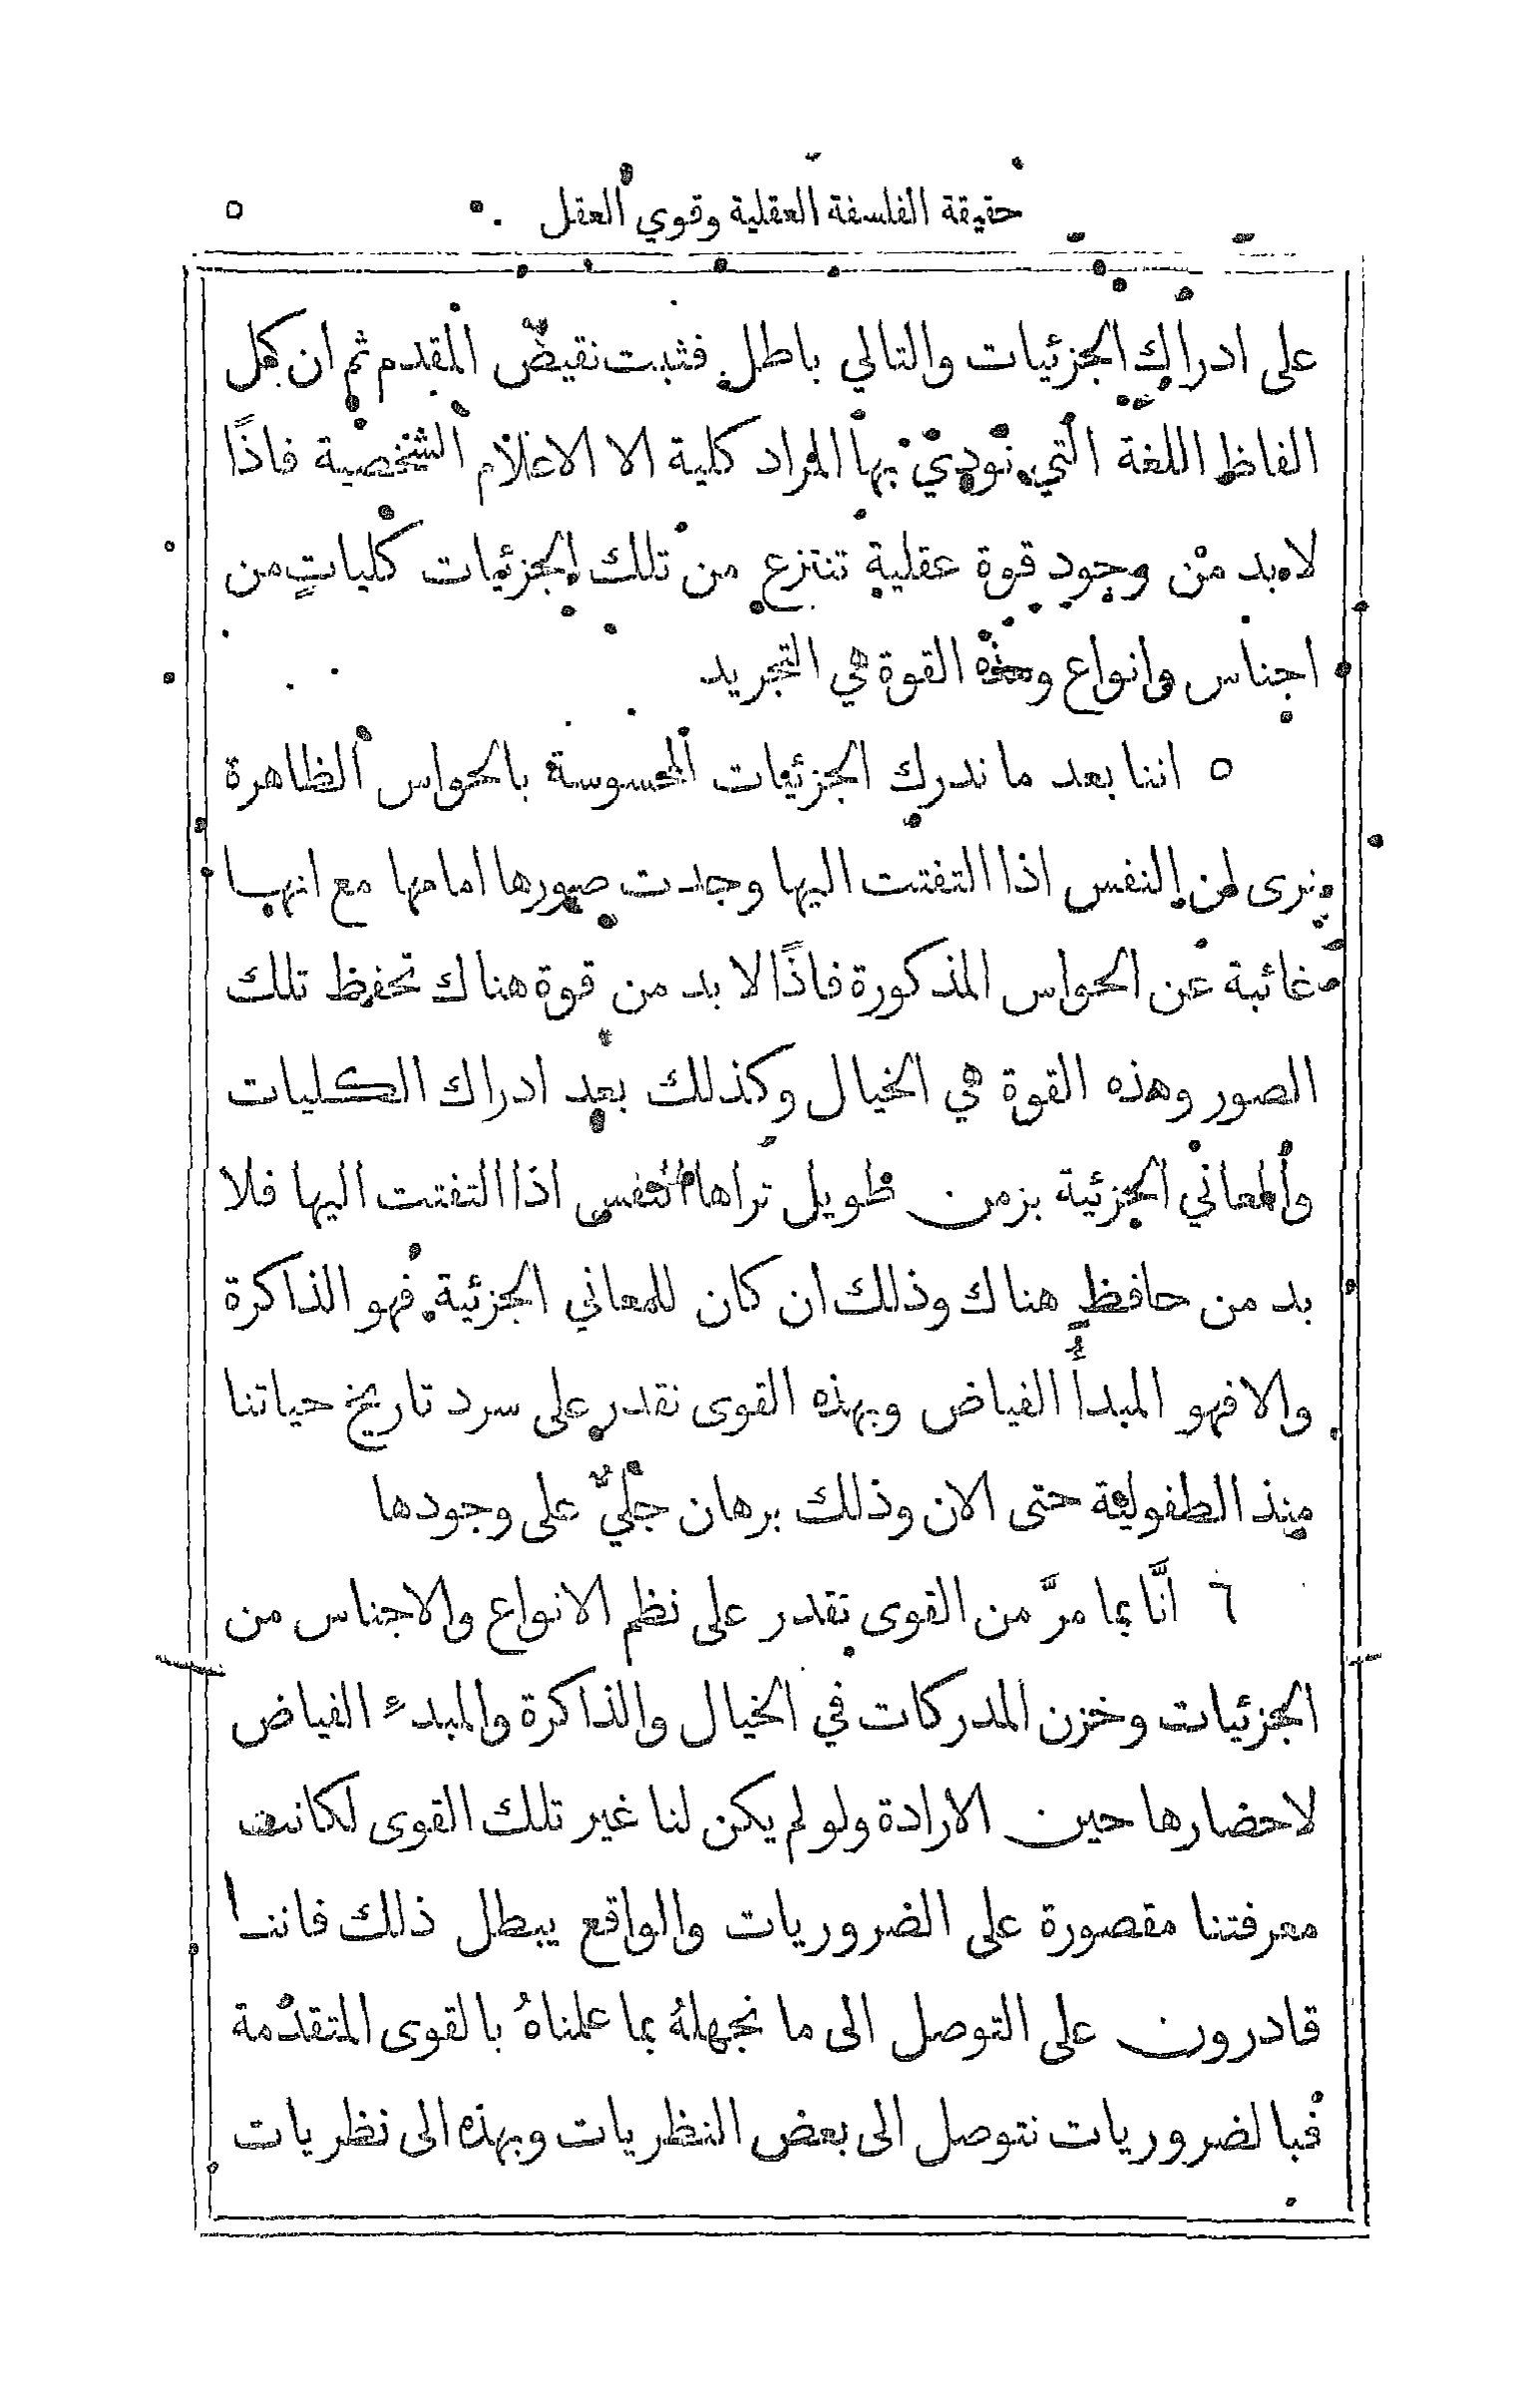 حقيقة الفلسفة العقلية وقوي العقل ٥
على ادراك الجزئيات والتالي باطل فثبت نقيض المقدم ثم ان كل
الفاظ اللغة التي نودي بها المراد كلية الا الاعلام الشخصية فاذًا
لا بد من وجود قوة عقلية تنتزع من تلك الجزئيات كلياتٍ من
اجناس وانواع وهذه القوة هي التجريد
٥ اننا بعد ما ندرك الجزئيات المحسوسة بالحواس الظاهرة
نرى ان النفس اذا التفتت اليها وجدت صورها امامها مع انها
غائبة عن الحواس المذكورة فاذًا لا بد من قوة هناك تحفظ تلك
الصور وهذه القوة هي الخيال وكذلك بعد ادراك الكليات
والمعاني الجزئية بزمن طويل تراها النفس اذا التفتت اليها فلا
بد من حافظٍ هناك وذلك ان كان للمعاني الجزئية فهو الذاكرة
والا فهو المبدأ الفياض وبهذه القوى نقدر على سرد تاريخ حياتنا
منذ الطفولية حتى الان وذلك برهان جليٌّ على وجودها
٦ انَّا بما مرَّ من القوى نقدر على نظم الانواع والاجناس من
الجزئيات وخزن المدركات في الخيال والذاكرة والمبدء الفياض
لاحضارها حين الارادة ولو لم يكن لنا غير تلك القوى لكانت
معرفتنا مقصورة على الضروريات والواقع يبطل ذلك فاننا
قادرون على التوصل الى ما نجهلهُ بما علمناهُ بالقوى المتقدمة
فبالضروريات نتوصل الى بعض النظريات وبهذه الى نظريات